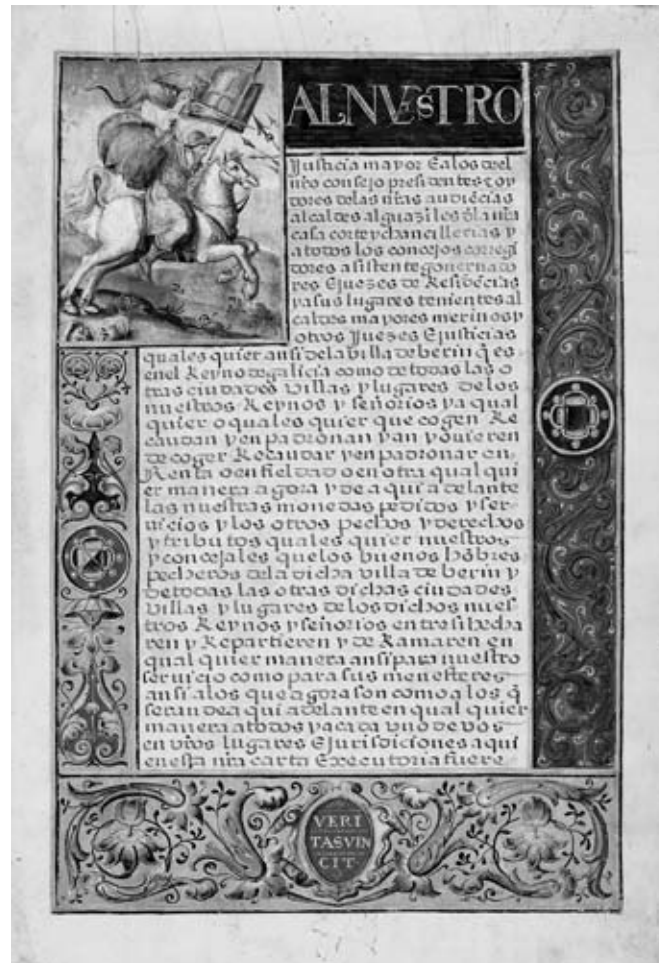 AL NVESTRO
Justicia mayor E alos del
nro consejo presidentes z oy
dores delas nras audiēcias
alcaldes alguaziles đla nra
casa corte y chancillerias y
a todos los concejos corregi
dores asistente gouernado
res E juezes de Residēcias
y a sus lugares tenientes al
caldes mayores merinos y
otros Juezes E justicias
quales quier ansi dela villa de berin q̄ es
enel Reyno de galicia como de todas las o
tras ciudades villas y lugares de los
nuestros Reynos y señorios y a qual
quier o quales quier que cogen Re
caudan y en padronan y an y ouieren
de coger Recaudar y en padronar en
Renta o en fieldad o en otra qual qui
er manera agora y de a qui a delante
las nuestras monedas pedidos y ser
uicios y los otros pechos y derechos
y tributos quales quier nuestros
y concejales quelos buenos hōbres
pecheros dela dicha villa de berin y
de todas las otras dichas ciudades
villas y lugares de los dichos nues
tros Reynos y señorios entre si hecha
ren y Repartieren y de Ramaren en
qual quier manera ansi para nuestro
seruicio como para sus menesteres
ansi alos que agora son como a los q̄
seran de a qui a delante en qual quier
manera a todos y a cada vno de vos
en vros lugares E jurisdiciones a qui
en esta nra carta Executoria fuere
VERI
TAS VIN
CIT